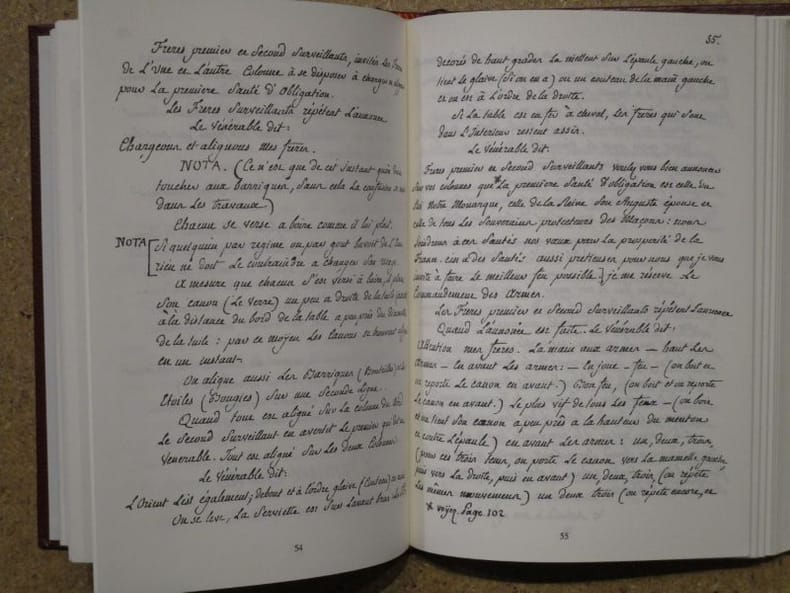 Freres premier et Second Surveillants, invités Les Freres
de L'une et L'autre Colonne à se disposer à charger et aligner
pour La premiere Santé d'Obligation.
Les Freres Surveillants répétent L'annonce
Le Vénérable dit:
Chargeons et alignons mes freres.
NOTA. (Ce n'est que de cet instant qu'on doit
toucher aux barriques, sans cela la confusion se met
dans Les travaux)
Chacun se verse a boire comme il lui plait.
NOTA [Si quelqu'un par regime ou par gout buvoit de L'Eau
rien ne doit Le contraindre a changer son usage.
A mesure que chacun s'est versé à boire, il place
Son canon (Le verre) un peu a droite de la tuile
à la distance du bord de la table a peu près du diametre
de la tuile: par ce moyen Les canons se trouvent alignés
en un instant.
On aligne aussi Les Barriques (Bouteilles) et les
Etoiles (Bougies) Sur une Seconde ligne.
Quand tout est aligné Sur La colonne du Nord
Le Second Surveillant en avertit Le premier qui dit au
Venerable. Tout est aligné Sur Les deux Colonnes
Le Vénérable dit:
L'Orient L'est également; debout et à l'ordre glaive (Couteau) en main
On se leve, La Serviette est sur L'avant bras
54
55.
decorés de haut grades La mettent Sur L'épaule gauche, on
tient Le glaive (Si on en a) ou un couteau de la main gauche
et on est à L'ordre de la droite.
Si La table est en fer à cheval, Les freres qui sont
dans L'Interieur restent assis.
Le Vénérable dit.
Freres premier et Second Surveillants veuillez bien annoncer
Sur vos colonnes que * La premiere Santé d'obligation est celle du
Roi Notre Monarque, celle de la Reine Son Auguste épouse et
celle de tous Les Souverains protecteurs des Maçons: nous
joindrons à ces Santés nos vœux pour La prosperité de la
france. C'est à des Santés aussi precieuses pour nous que je vous
invite à faire Le meilleur feu possible] je me reserve Le
Commandement des Armes.
Les Freres premier et Second Surveillants répétent L'annonce
Quand L'annonce est faite. Le Vénérable dit:
Attention mes freres. La main aux armes — haut Les
Armes — En avant Les armes: — En joue — feu — (on boit et
on reporte Le canon en avant.) Bon feu, (on boit et on reporte
Le canon en avant.) Le plus vif de tous Les feux — (on boit
et on tient Son canon a peu près à la hauteur du menton
et contre L'épaule) en avant Les armes: un, deux, trois,
(pour ces trois tems, on porte Le canon vers La mamelle gauche,
puis vers La droite, puis en avant) un, deux, trois, (on répéte
Les mêmes mouvements) un deux trois (on répéte encore, et
* voyez Page 102
55